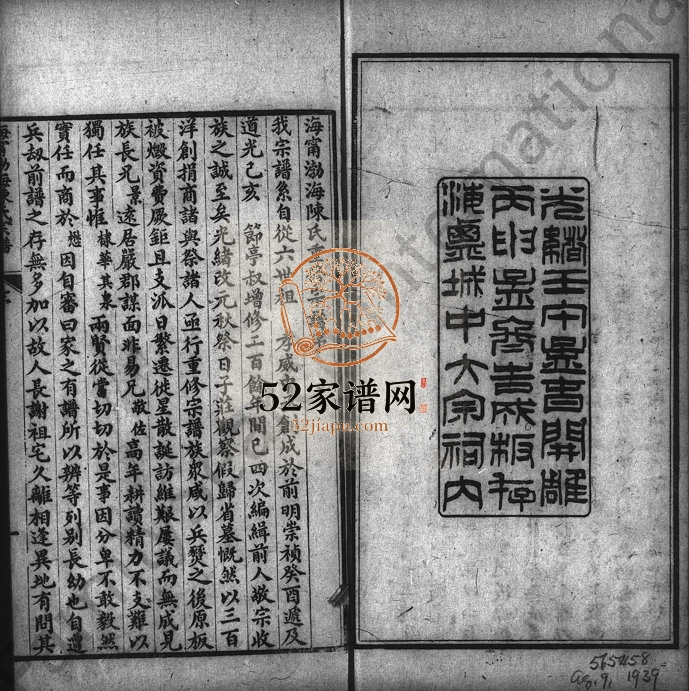 光緒壬午孟春開雕
丙申孟冬告成板存
淹東城中大宗祠內
海甯渤海陳氏重
我宗譜系自從六世祖 方成 創成於前明崇禎癸酉遞及
道光己亥 節亭叔增修二百餘年間已四次編緝前人敬宗收
族之誠至矣光緒改元秋祭日子莊觀察假歸省墓慨然以三百
洋創捐商諸與祭諸人亟行重修宗譜族眾咸以兵燹之後原板
被燬資費厥鉅且支派日繁遷徙星散誕訪維艱屢議而無成見
族長兄景遠居嚴郡謀面非易兄敝佐高年耕讀精力不支難以
獨任其事惟 棣華其泉 兩賢從當切切於是事因分卑不敢毅然
實任而商於 因自審曰家之有譜所以辨等列別長幼也自遭
兵刼前譜之存無多加以故人長謝祖宅久離相逢異地有問其
52家谱网
52jiapu.com
International
565458
Ag. 9, 1939